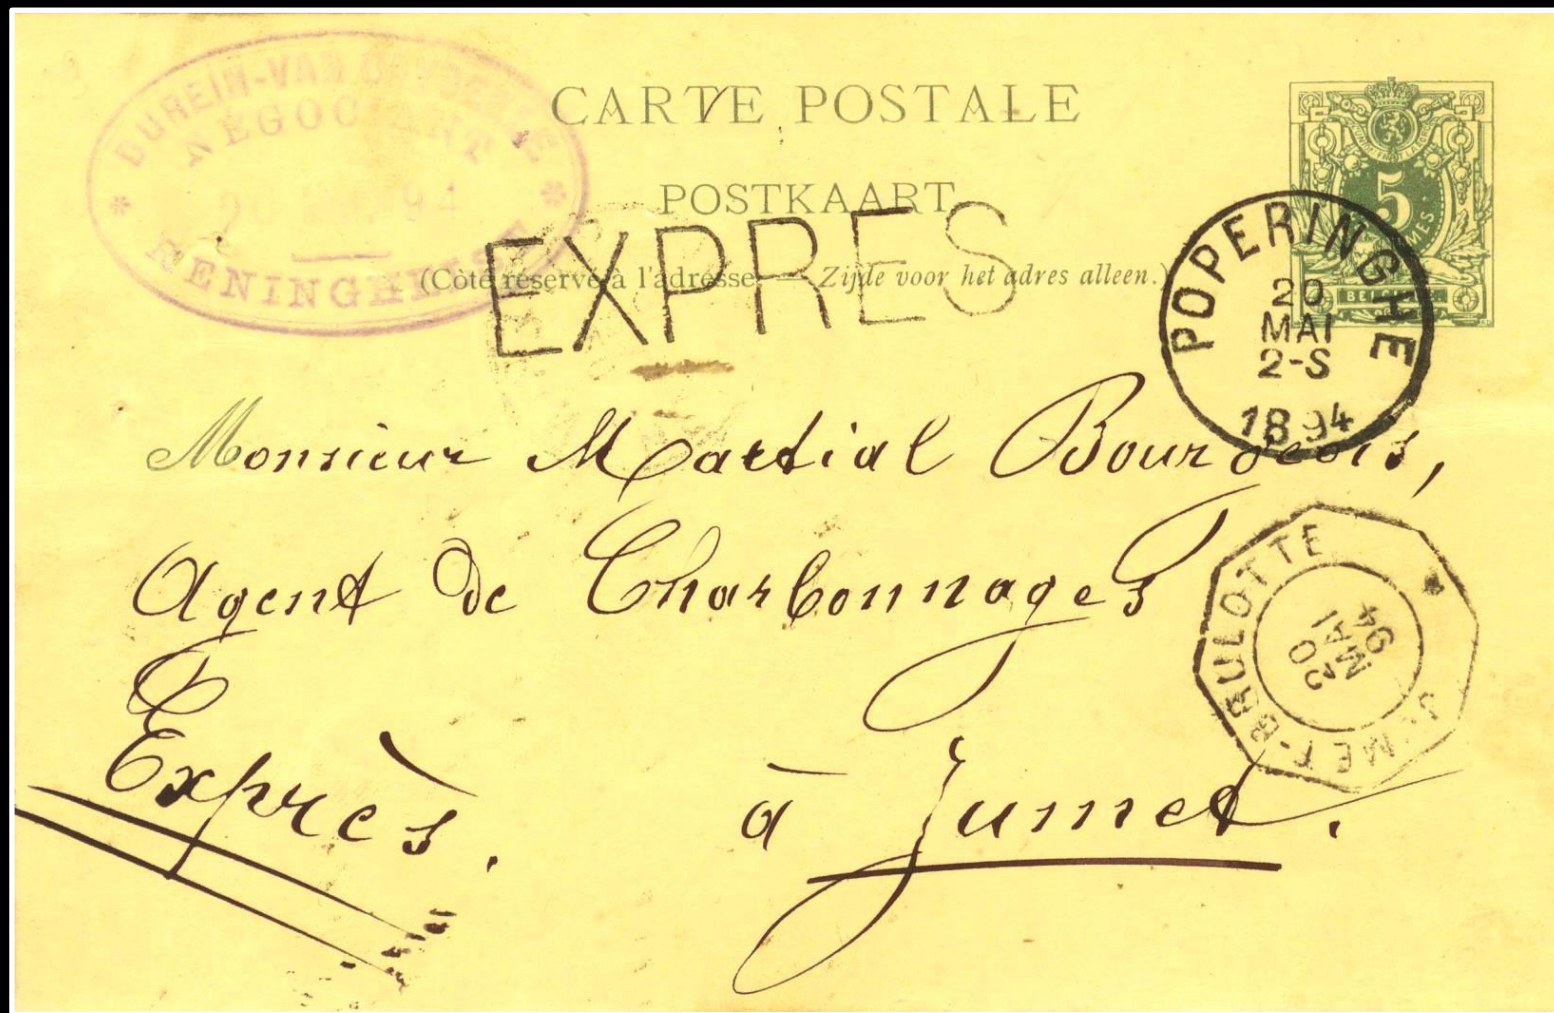 NÉGOCIANT
CARTE POSTALE
POSTKAART
(Côté réservé à l'adresse. — Zijde voor het adres alleen.)
EXPRES
5
POPERINGHE
20
MAI
2-S
1894
Monsieur Martial Bourgeois,
Agent de Charbonnages
Exprès.
à Jumet.
JUMET-BRULOTTE
20
MAI
94